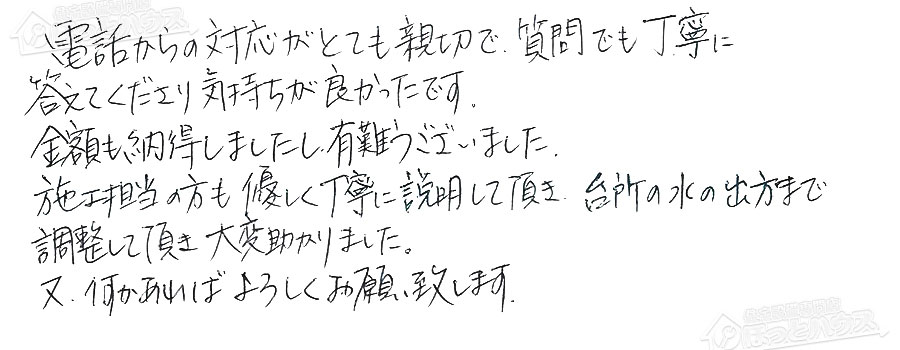 電話からの対応がとても親切で、質問でも丁寧に
答えてくださり気持ちが良かったです。
金額も納得しましたし、有難うございました。
施工担当の方も優しく丁寧に説明して頂き、台所の水の出方まで
調整して頂き大変助かりました。
又、何かあればよろしくお願い致します。
ほっとハウス